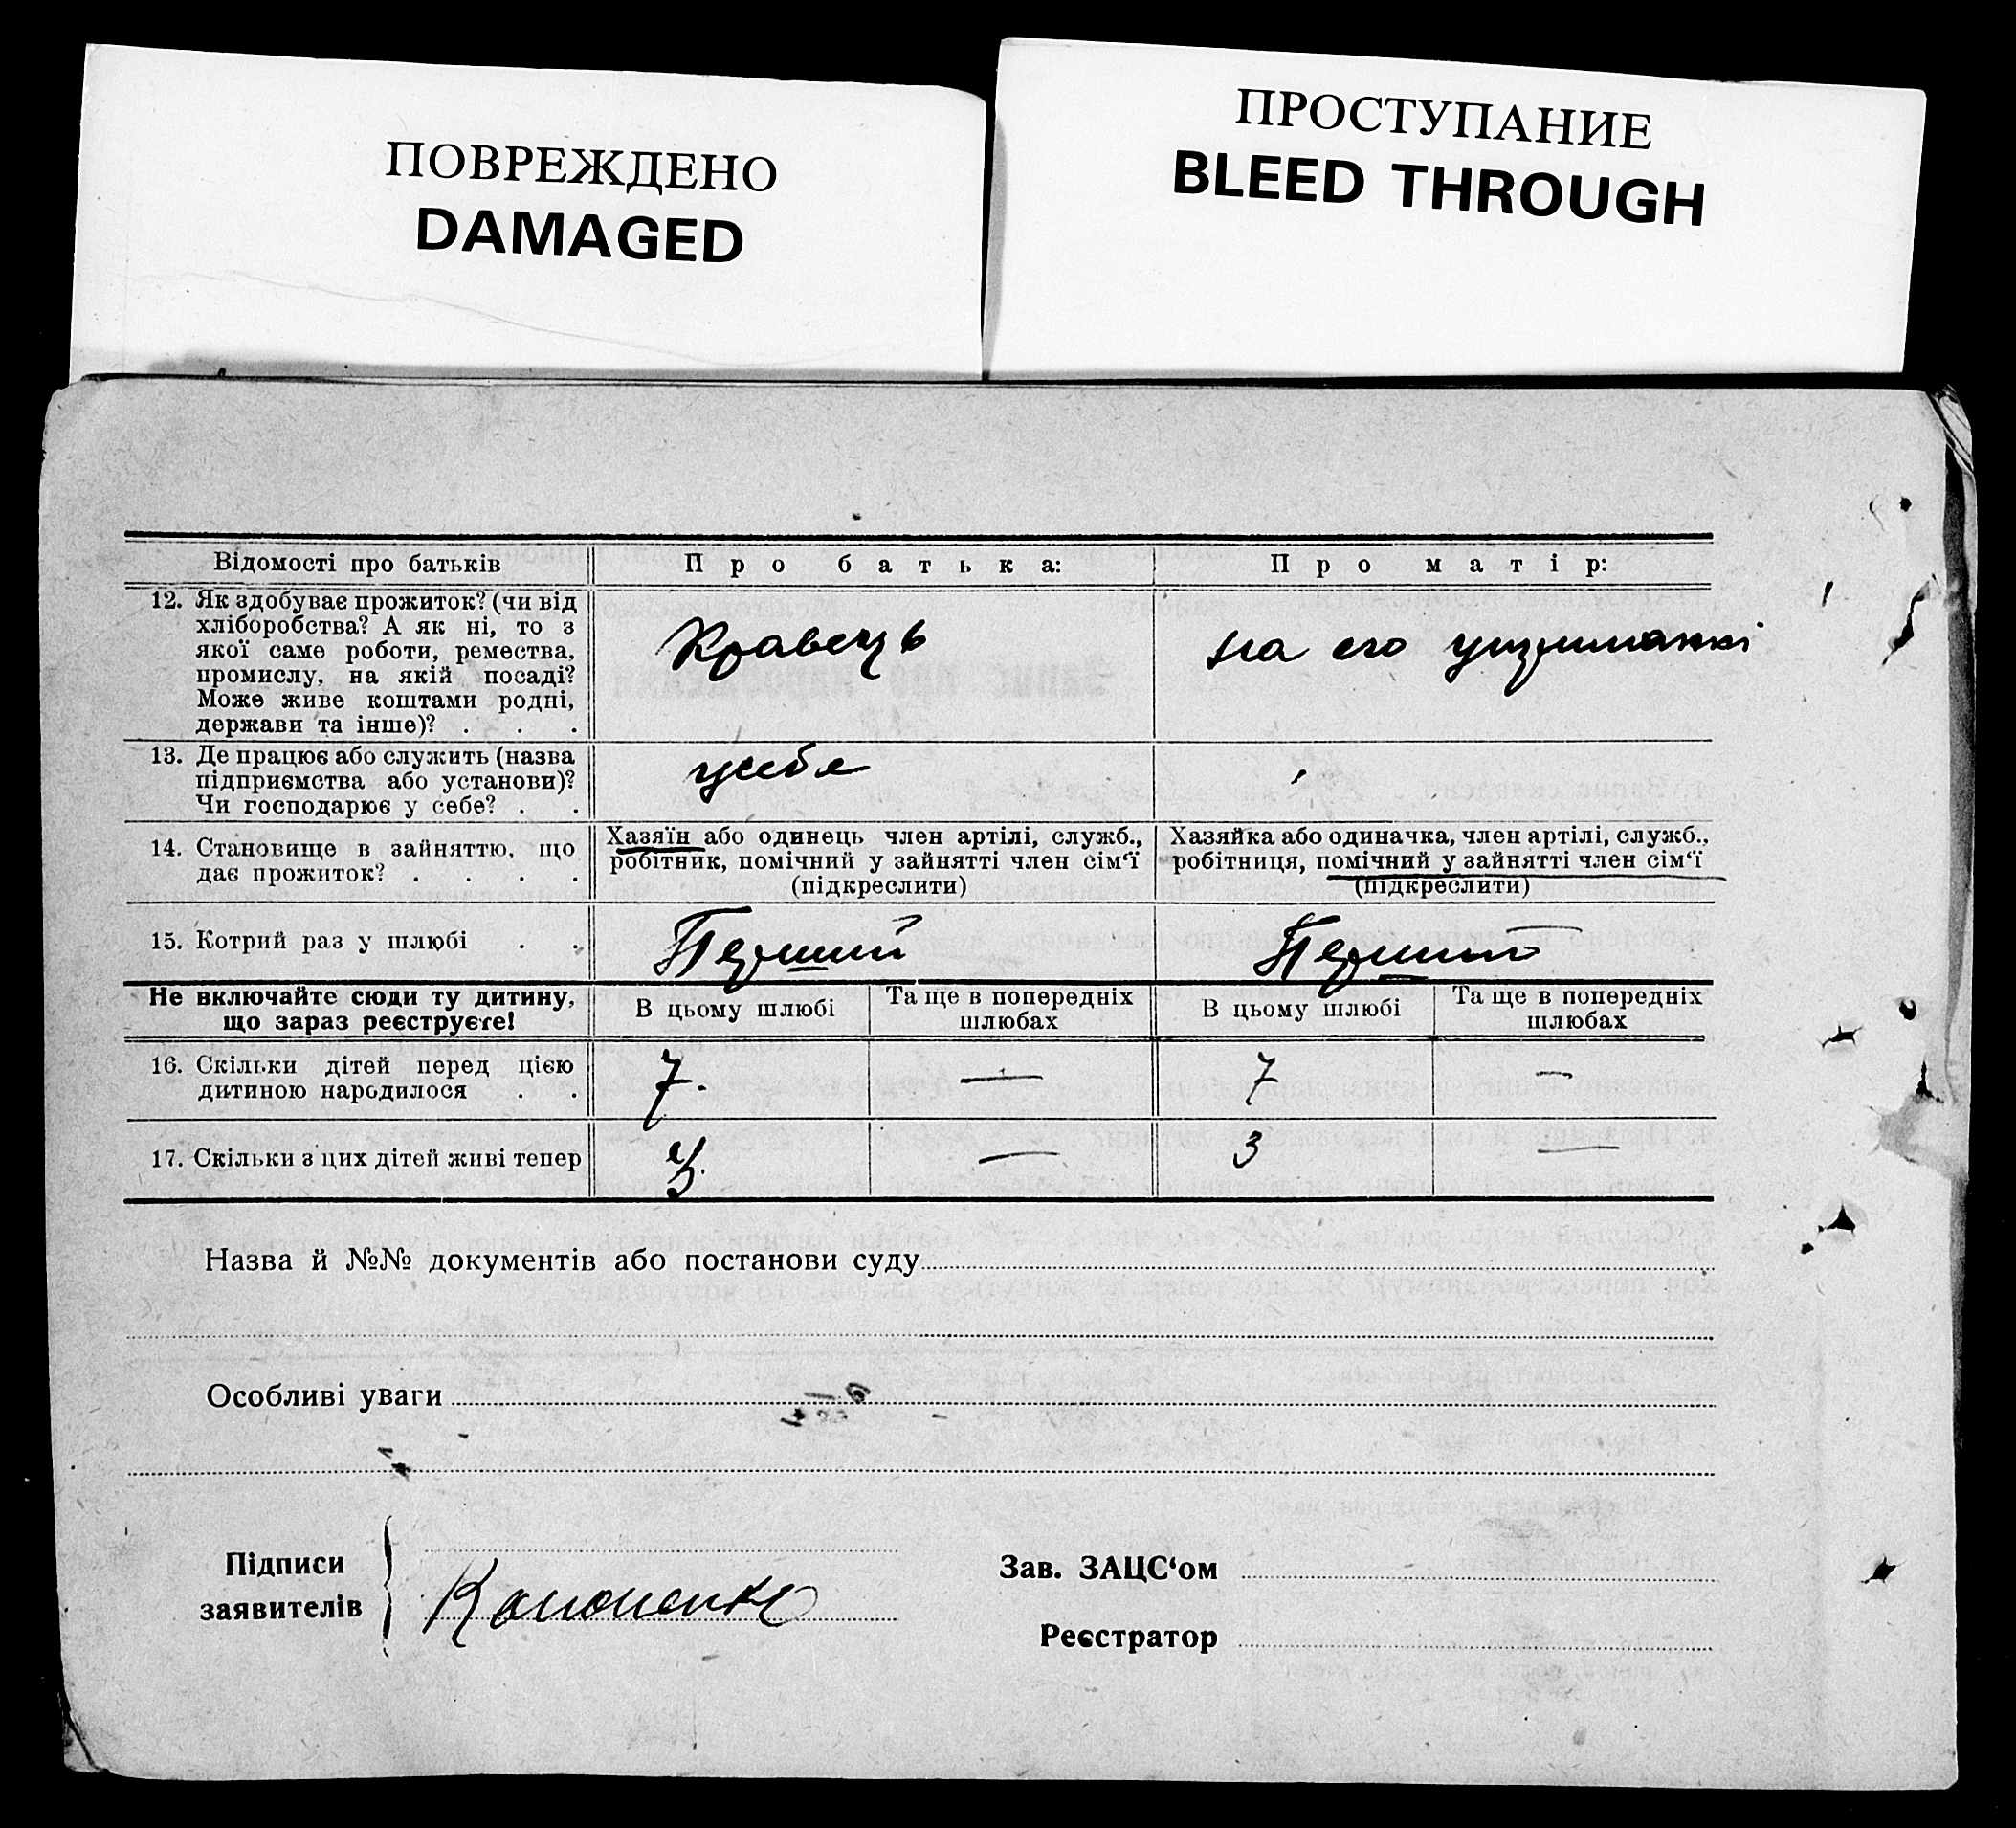 ПОВРЕЖДЕНО
DAMAGED
ПРОСТУПАНИЕ
BLEED THROUGH
Відомості про батьків
Про батька:
Про матір:
12. Як здобуває прожиток? (чи від
хліборобства? А як ні, то з
якої саме роботи, ремества,
промислу, на якій посаді?
Може живе коштами родні,
держави та інше)? . . .
Кравець
на его утриманні
13. Де працює або служить (назва
підприємства або установи)?
Чи господарює у себе? . .
у себе
14. Становище в зайняттю, що
дає прожиток? . . . .
Хазяїн або одинець член артілі, служб.,
робітник, помічний у зайнятті член сім‘ї
(підкреслити)
Хазяйка або одиначка, член артілі, служб.,
робітниця, помічний у зайнятті член сім‘ї
(підкреслити)
15. Котрий раз у шлюбі . .
Перший
Перший
Не включайте сюди ту дитину,
що зараз реєструєте!
В цьому шлюбі
Та ще в попередніх
шлюбах
В цьому шлюбі
Та ще в попередніх
шлюбах
16. Скільки дітей перед цією
дитиною народилося . .
7. — 7 —
17. Скільки з цих дітей живі тепер
3. — 3 —
Назва й №№ документів або постанови суду
Особливі уваги
Підписи
заявителів
Кононенко
Зав. ЗАЦС‘ом
Реєстратор